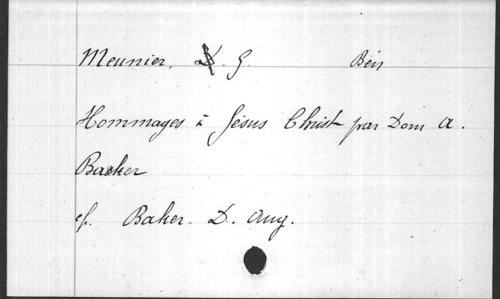 Meunier. D. G. Bén
Hommages à Jésus Christ par Dom A.
Backer
cf. Baker. D. Aug.